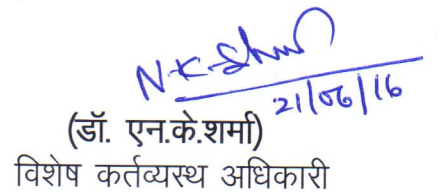 N.K.Sharma
21/06/16
(डॉ. एन.के.शर्मा)
विशेष कर्तव्यस्थ अधिकारी